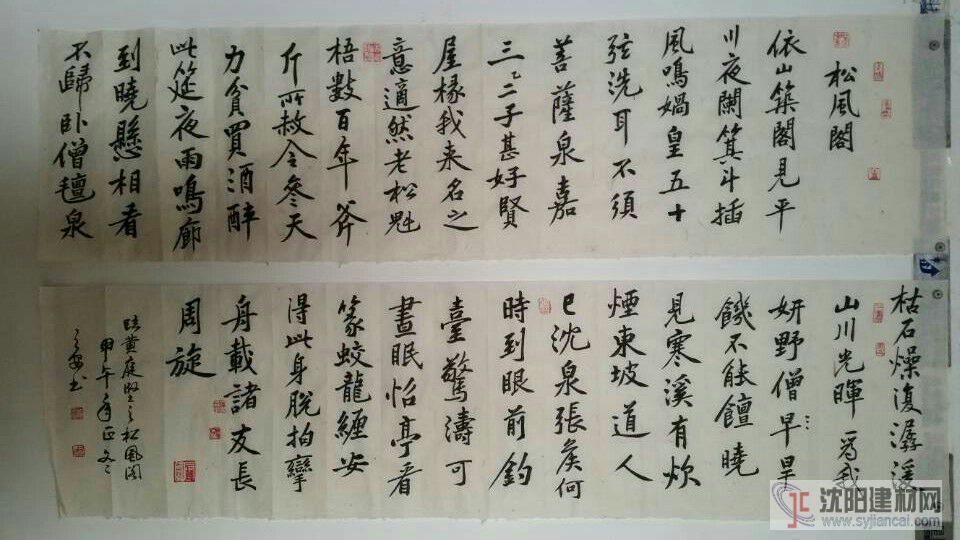 松風閣
依山築閣見平
川夜闌箕斗插
風鳴媧皇五十
弦洗耳不須
菩薩泉嘉
三二三子甚好賢
屋椽我来名之
意適然老松魁
梧數百年斧
斤所赦今參天
力貧買酒醉
此筵夜雨鳴廊
到曉懸相看
不歸卧僧氊泉
枯石燥復潺湲
山川光暉為我
妍野僧早旱
饑不能饘曉
見寒溪有炊
煙東坡道人
已沈泉張矦何
時到眼前釣
臺驚濤可
晝眠怡亭看
篆蛟龍纏安
得此身脫拘攣
舟載諸友長
周旋
臨黃庭堅之松風閣
甲午年正文
書
沈阳建材网
www.syjiancai.com